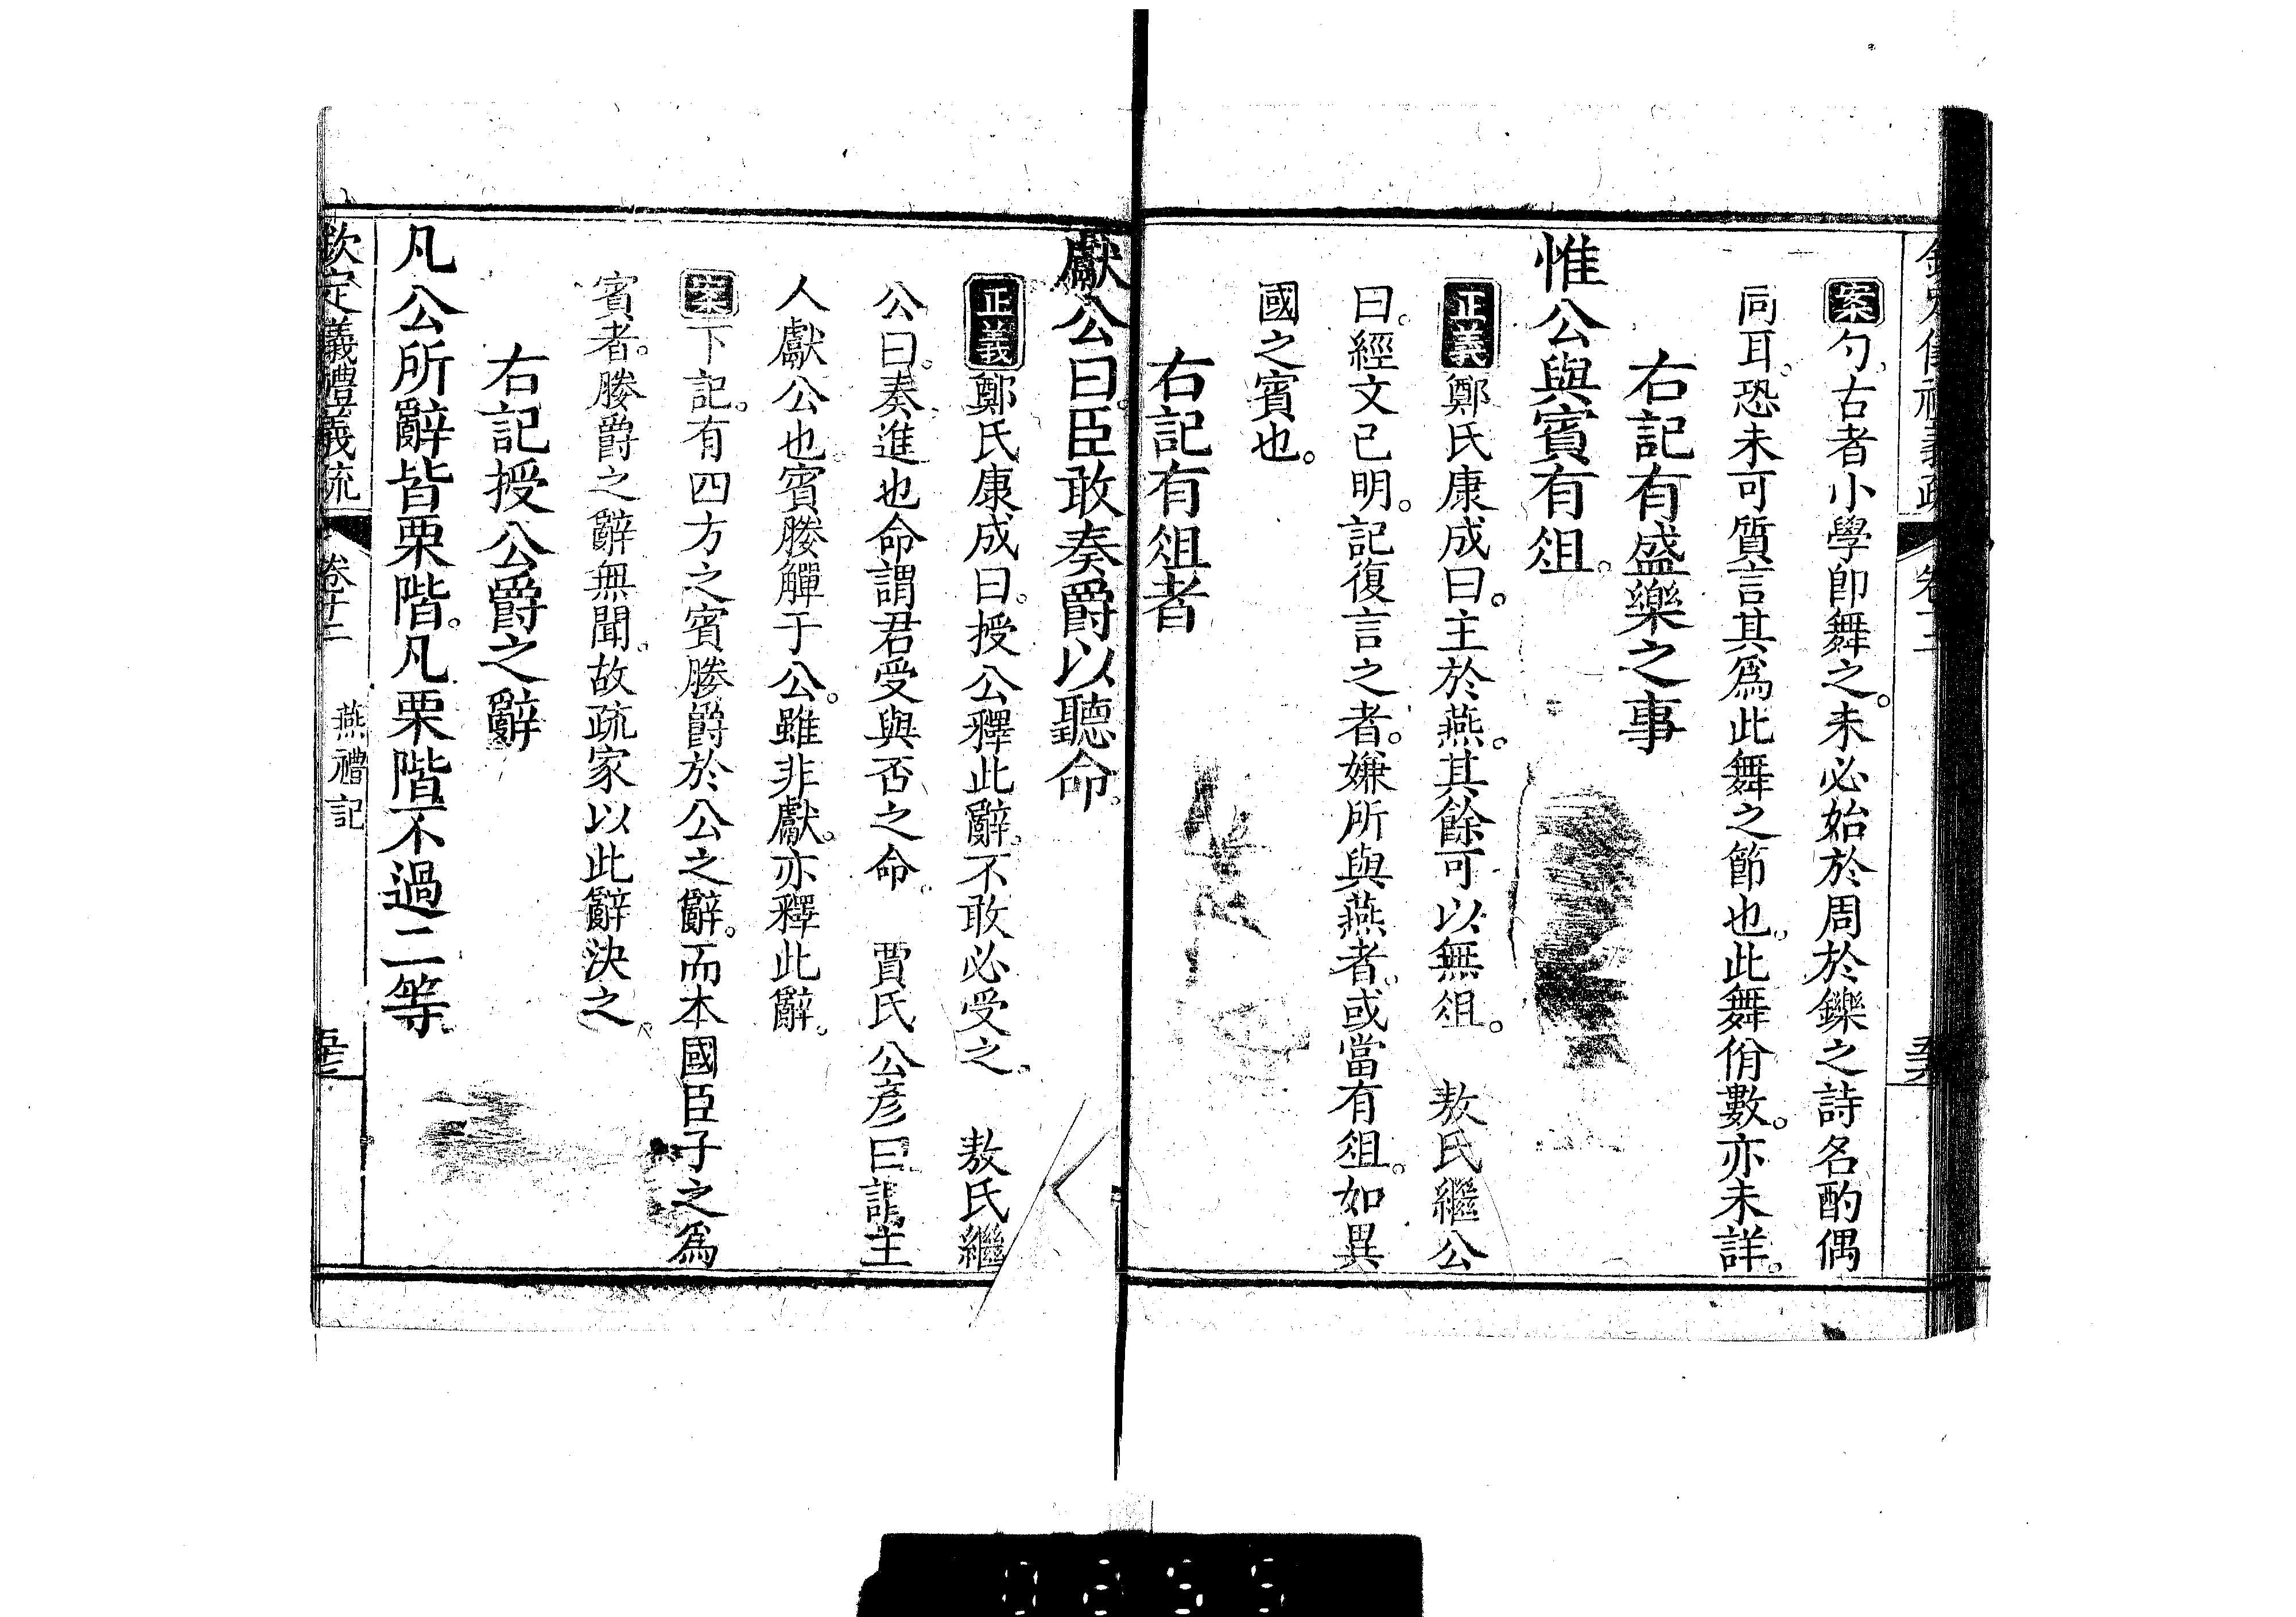 案勺古者小學卽舞之。未必始於周於鑠之詩名酌偶
同耳。恐未可質言其爲此舞之節也。此舞佾數。亦未詳。
右記有盛樂之事
惟公與賓有俎。
正義鄭氏康成曰。主於燕。其餘可以無俎。 敖氏繼公
曰。經文已明。記復言之者。嫌所與燕者。或當有俎。如異
國之賓也。
右記有俎者
獻公曰。臣敢奏爵以聽命。
正義鄭氏康成曰。授公釋此辭。不敢必受之。 敖氏繼
公曰。奏。進也命謂君受與否之命。 賈氏公彥曰謂主
人獻公也。賓媵觶于公。雖非獻。亦釋此辭。
案下記。有四方之賓媵爵於公之辭。而本國臣子之爲
賓者。媵爵之辭無聞。故疏家以此辭決之。
右記授公爵之辭
凡公所辭皆栗階。凡栗階不過二等。
欽定儀禮義疏 卷十二 燕禮記